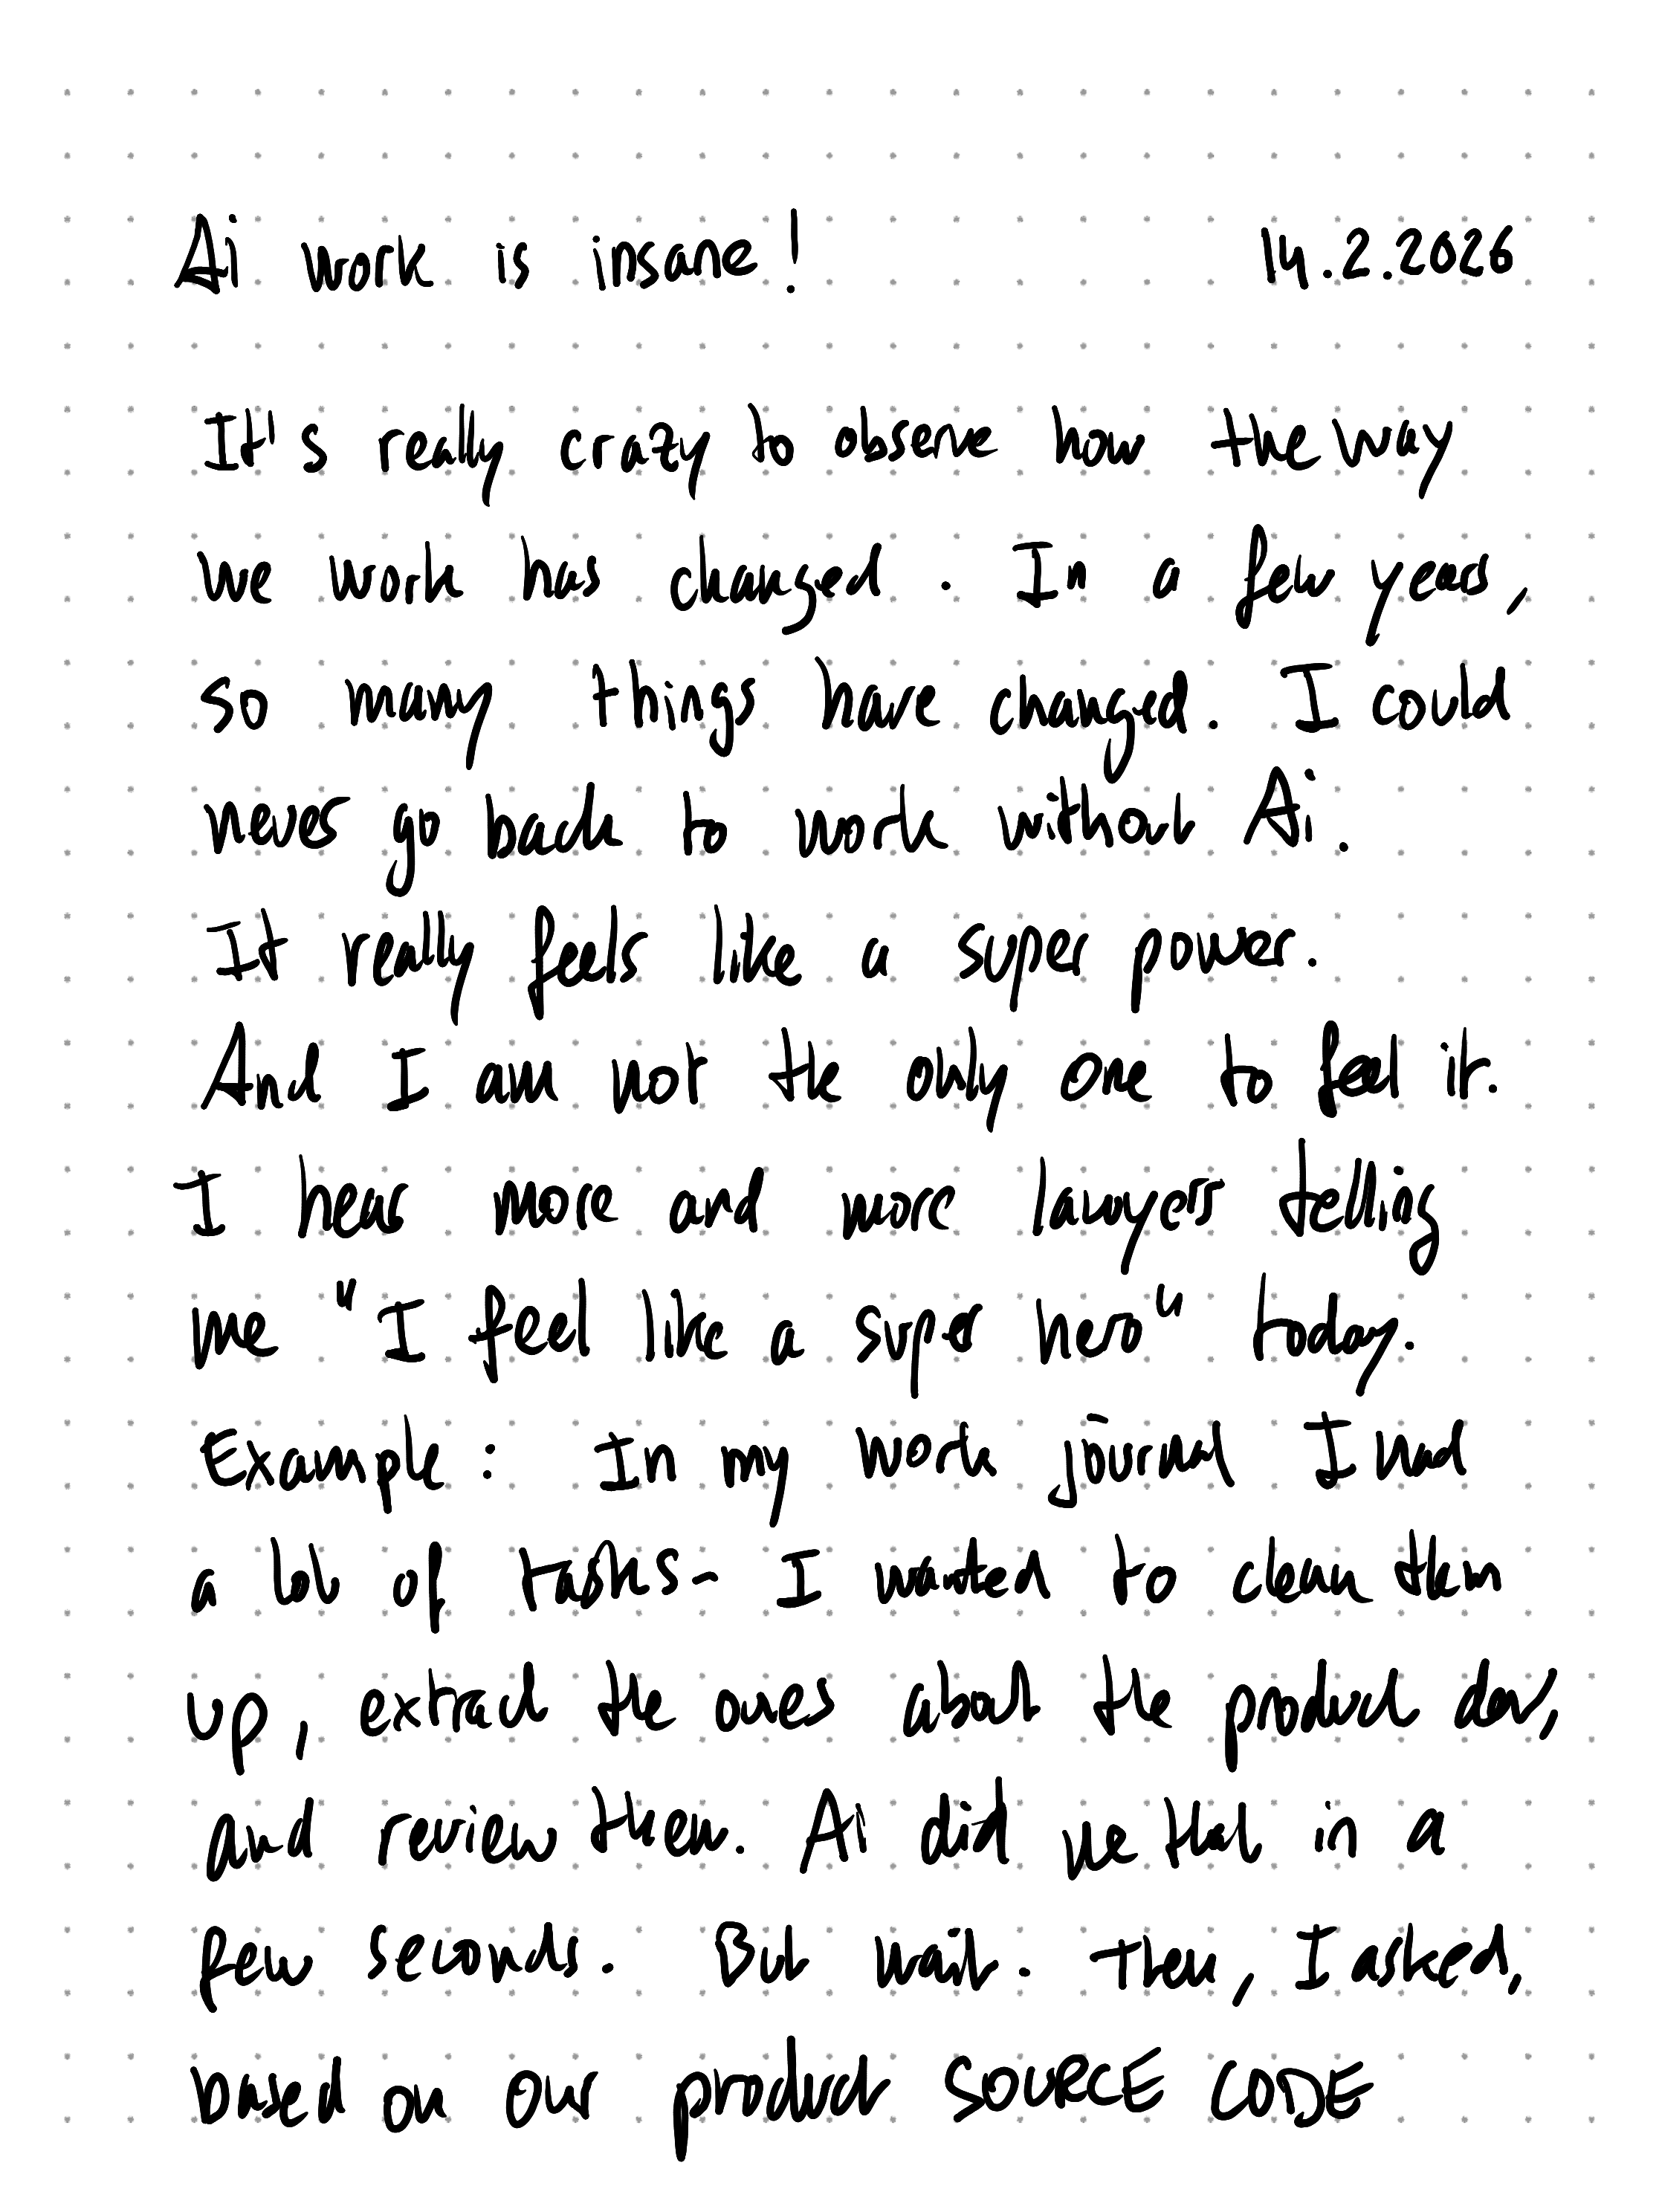 Ai work is insane! 14.2.2026
It's really crazy to observe how the way
we work has changed. In a few years,
so many things have changed. I could
never go back to work without Ai.
It really feels like a super power.
And I am not the only one to feel it.
I hear more and more lawyers telling
me "I feel like a super hero" today.
Example: In my work journal I had
a lot of tasks- I wanted to clean them
up, extract the ones about the product dev,
and review them. Ai did me that in a
few seconds. But wait. Then, I asked,
based on our product SOURCE CODE